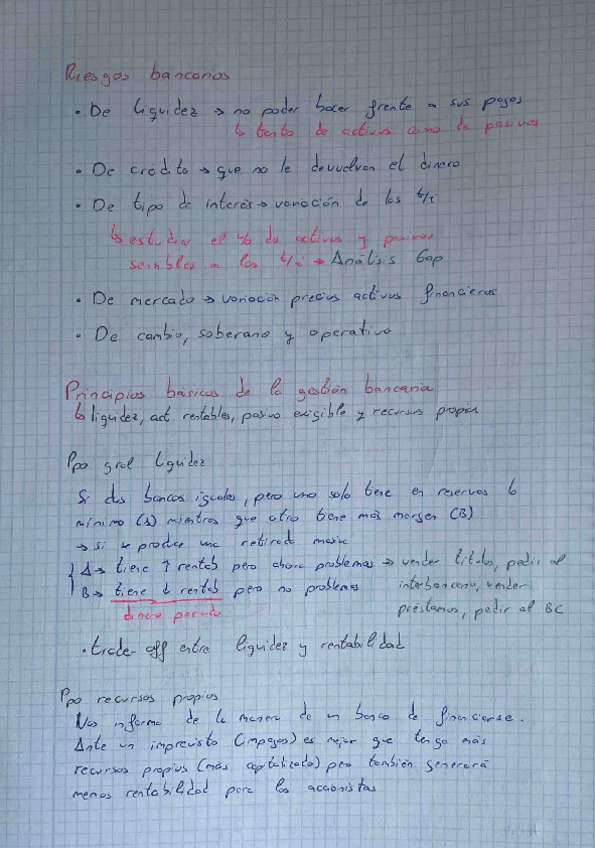 Riesgos bancarios
• De liquidez → no poder hacer frente a sus pagos
↳ tanto de activos como de pasivos
• De credito → que no le devuelvan el dinero
• De tipo de interés → variación de los t/i
↳ estudiar el % de activos y pasivos
sensibles a los t/i → Análisis Gap
• De mercado → variación precios activos financieros
• De cambio, soberano y operativo
Principios básicos de la gestión bancaria
↳ liquidez, act rentables, pasivo exigible y recursos propios
Ppo gral liquidez
Si dos bancos iguales, pero uno solo tiene en reservas lo
mínimo (A) mientras que otro tiene más margen (B)
→ si se produce una retirada masiva
A → tiene ↑ rentab pero ahora problemas → vender titulos, pedir al
B → tiene ↓ rentab pero no problemas interbancario, vender
dinero parado préstamos, pedir al BC
• trade-off entre liquidez y rentabilidad
Ppo recursos propios
Nos informa de la manera de un banco de financiarse.
Ante un imprevisto (impagos) es mejor que tenga más
recursos propios (más capitalizado) pero también generará
menos rentabilidad para los accionistas